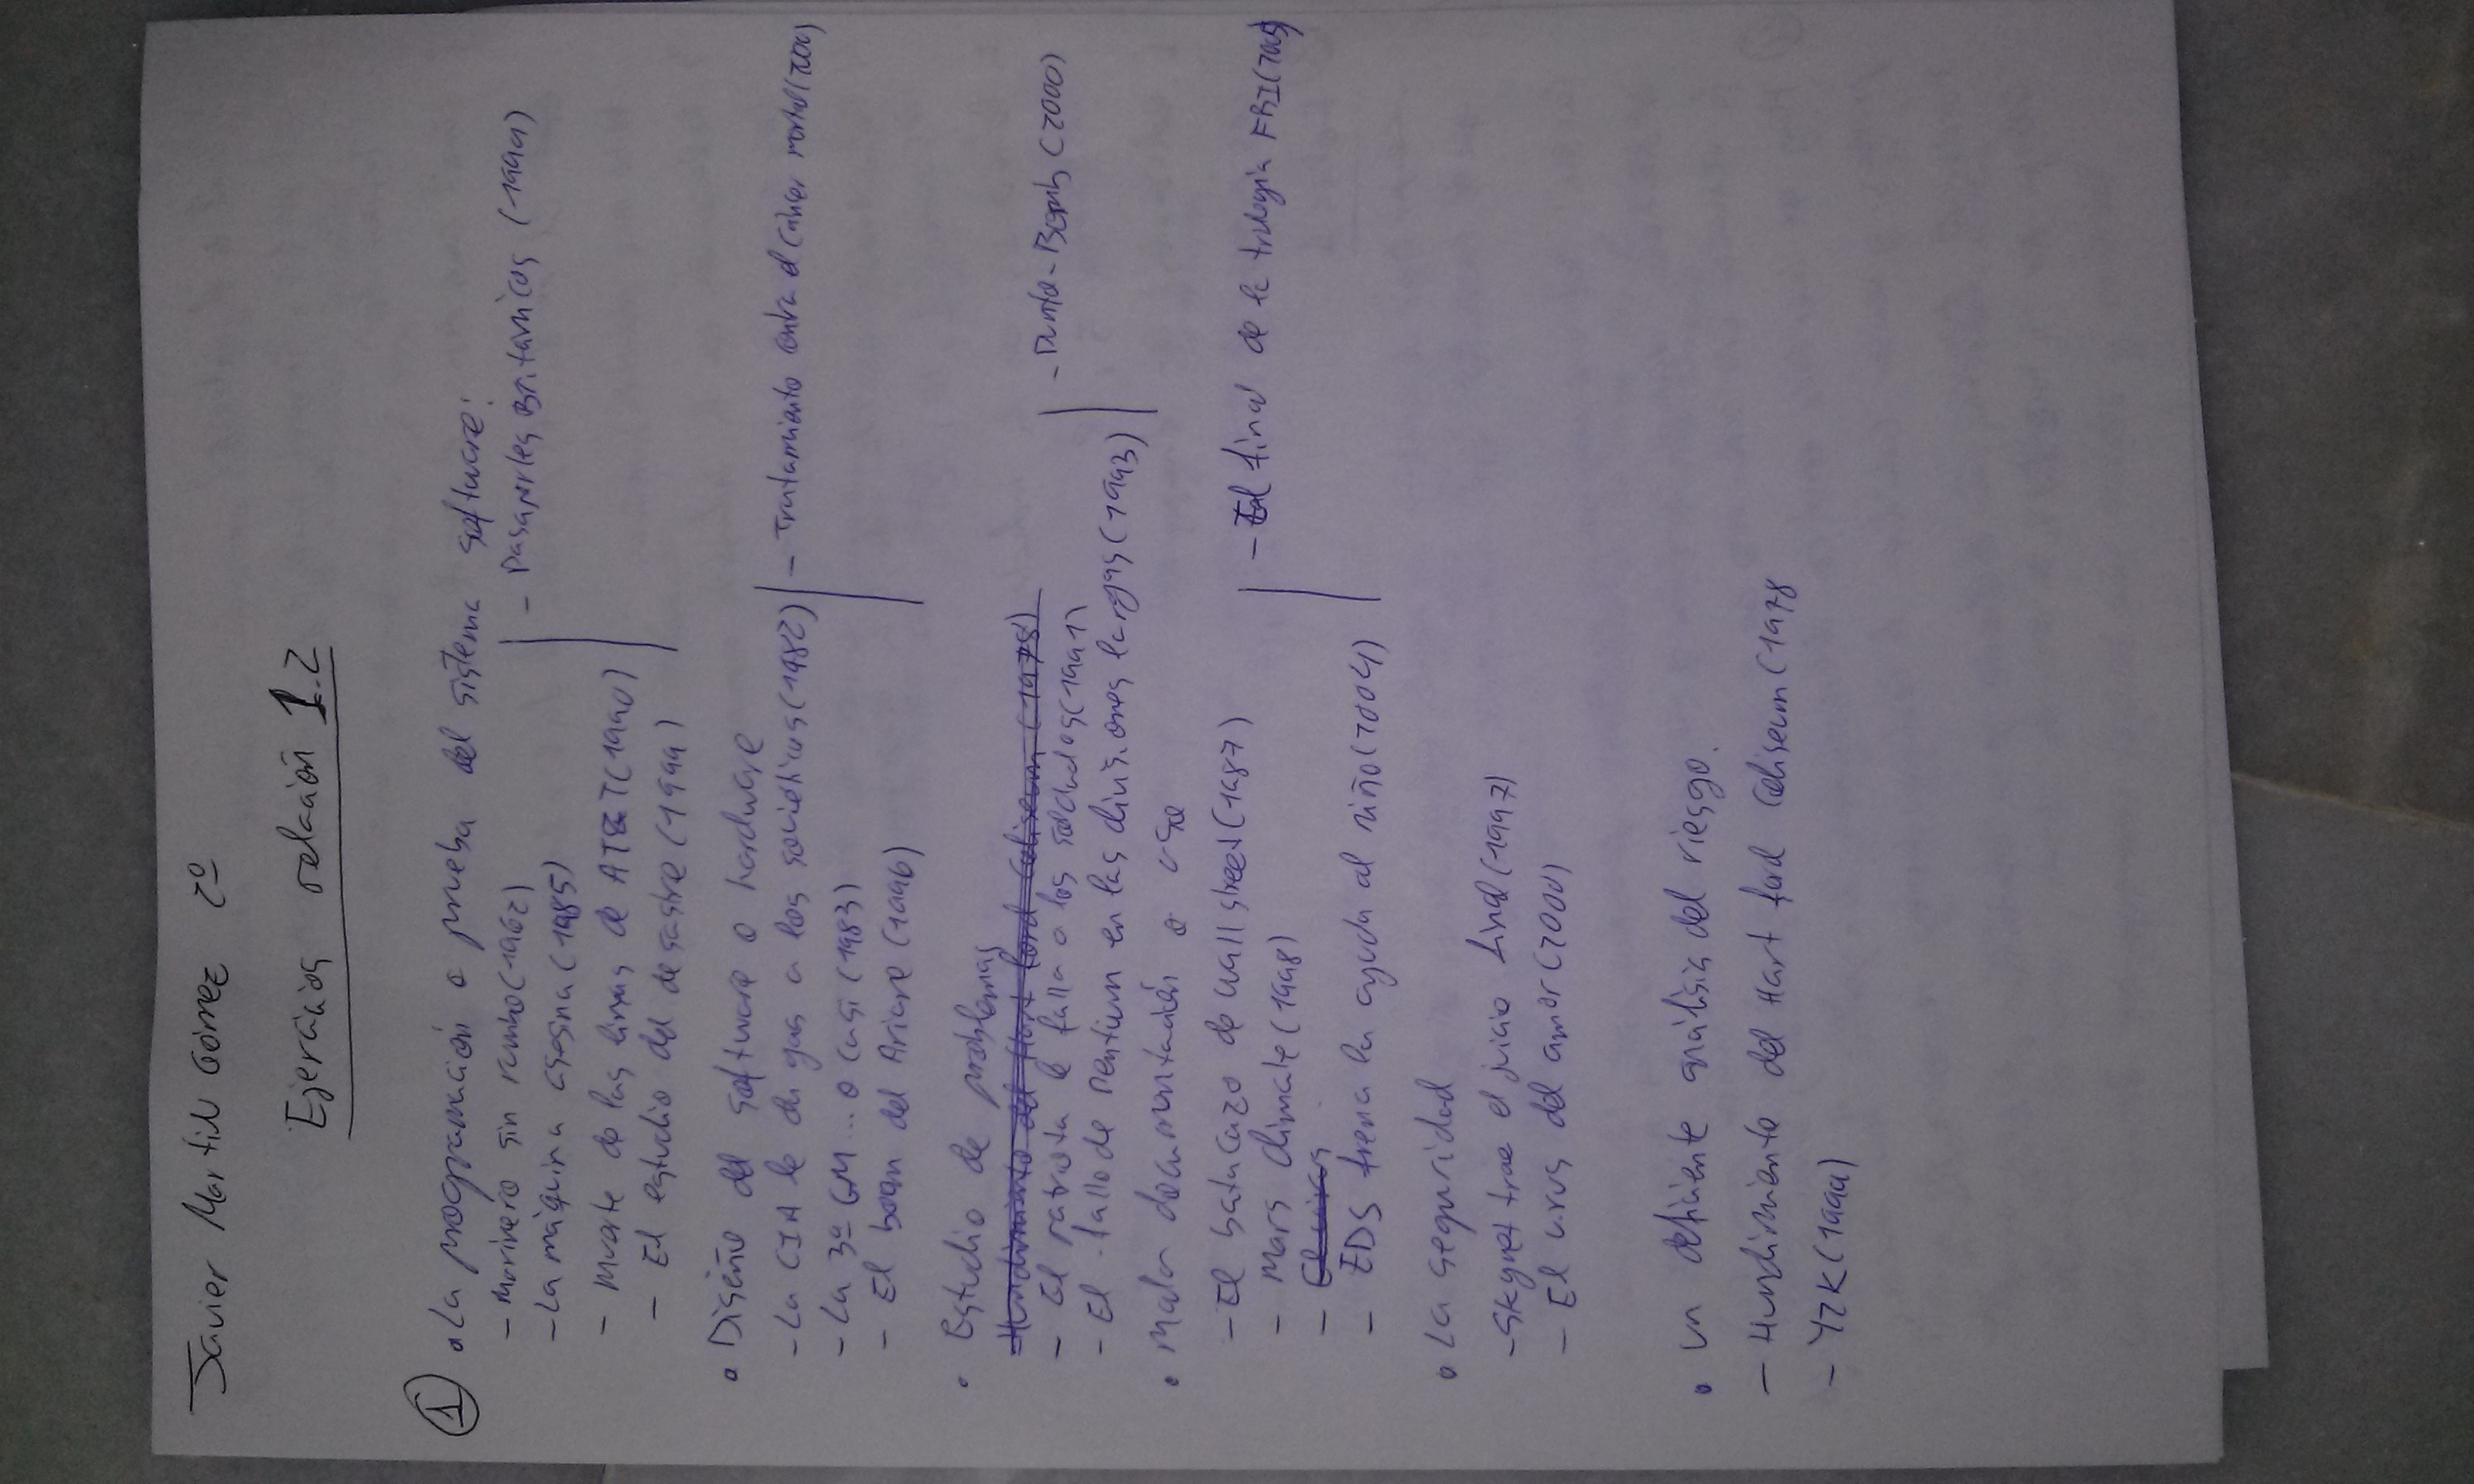 Javier Martin Gómez 2º
Ejercicios relación 1.2
1 • La programación o prueba del sistema software:
- Marinero sin rumbo (1962)
- La máquina asesina (1985)
- Muerte de las lineas de AT&T (1990)
- El estudio del desastre (1999)
- Pasaportes Británicos (1999)
• Diseño del software o hardware
- La CIA le da gas a los soviéticos (1982)
- La 3ª GM... o casi (1983)
- El boom del Ariane (1996)
- Tratamiento contra el cáncer mortal (2000)
• Estudio de problemas
Hundimiento del Hart ford Coliseum (1978)
- El patriota le falla a los soldados (1991)
- El fallo de Pentium en las divisiones largas (1993)
- Punto-Bomb (2000)
• Mala documentación o uso
- El batacazo de wall street (1987)
- Mars Climate (1998)
- El virus
- EDS frena la ayuda al niño (2004)
- El final de la trilogía FBI (2005)
• La seguridad
- Skynet trae el juicio final (1997)
- El virus del amor (2000)
• Un deficiente análisis del riesgo.
- Hundimiento del Hart ford Coliseum (1978
- Y2K (1999)